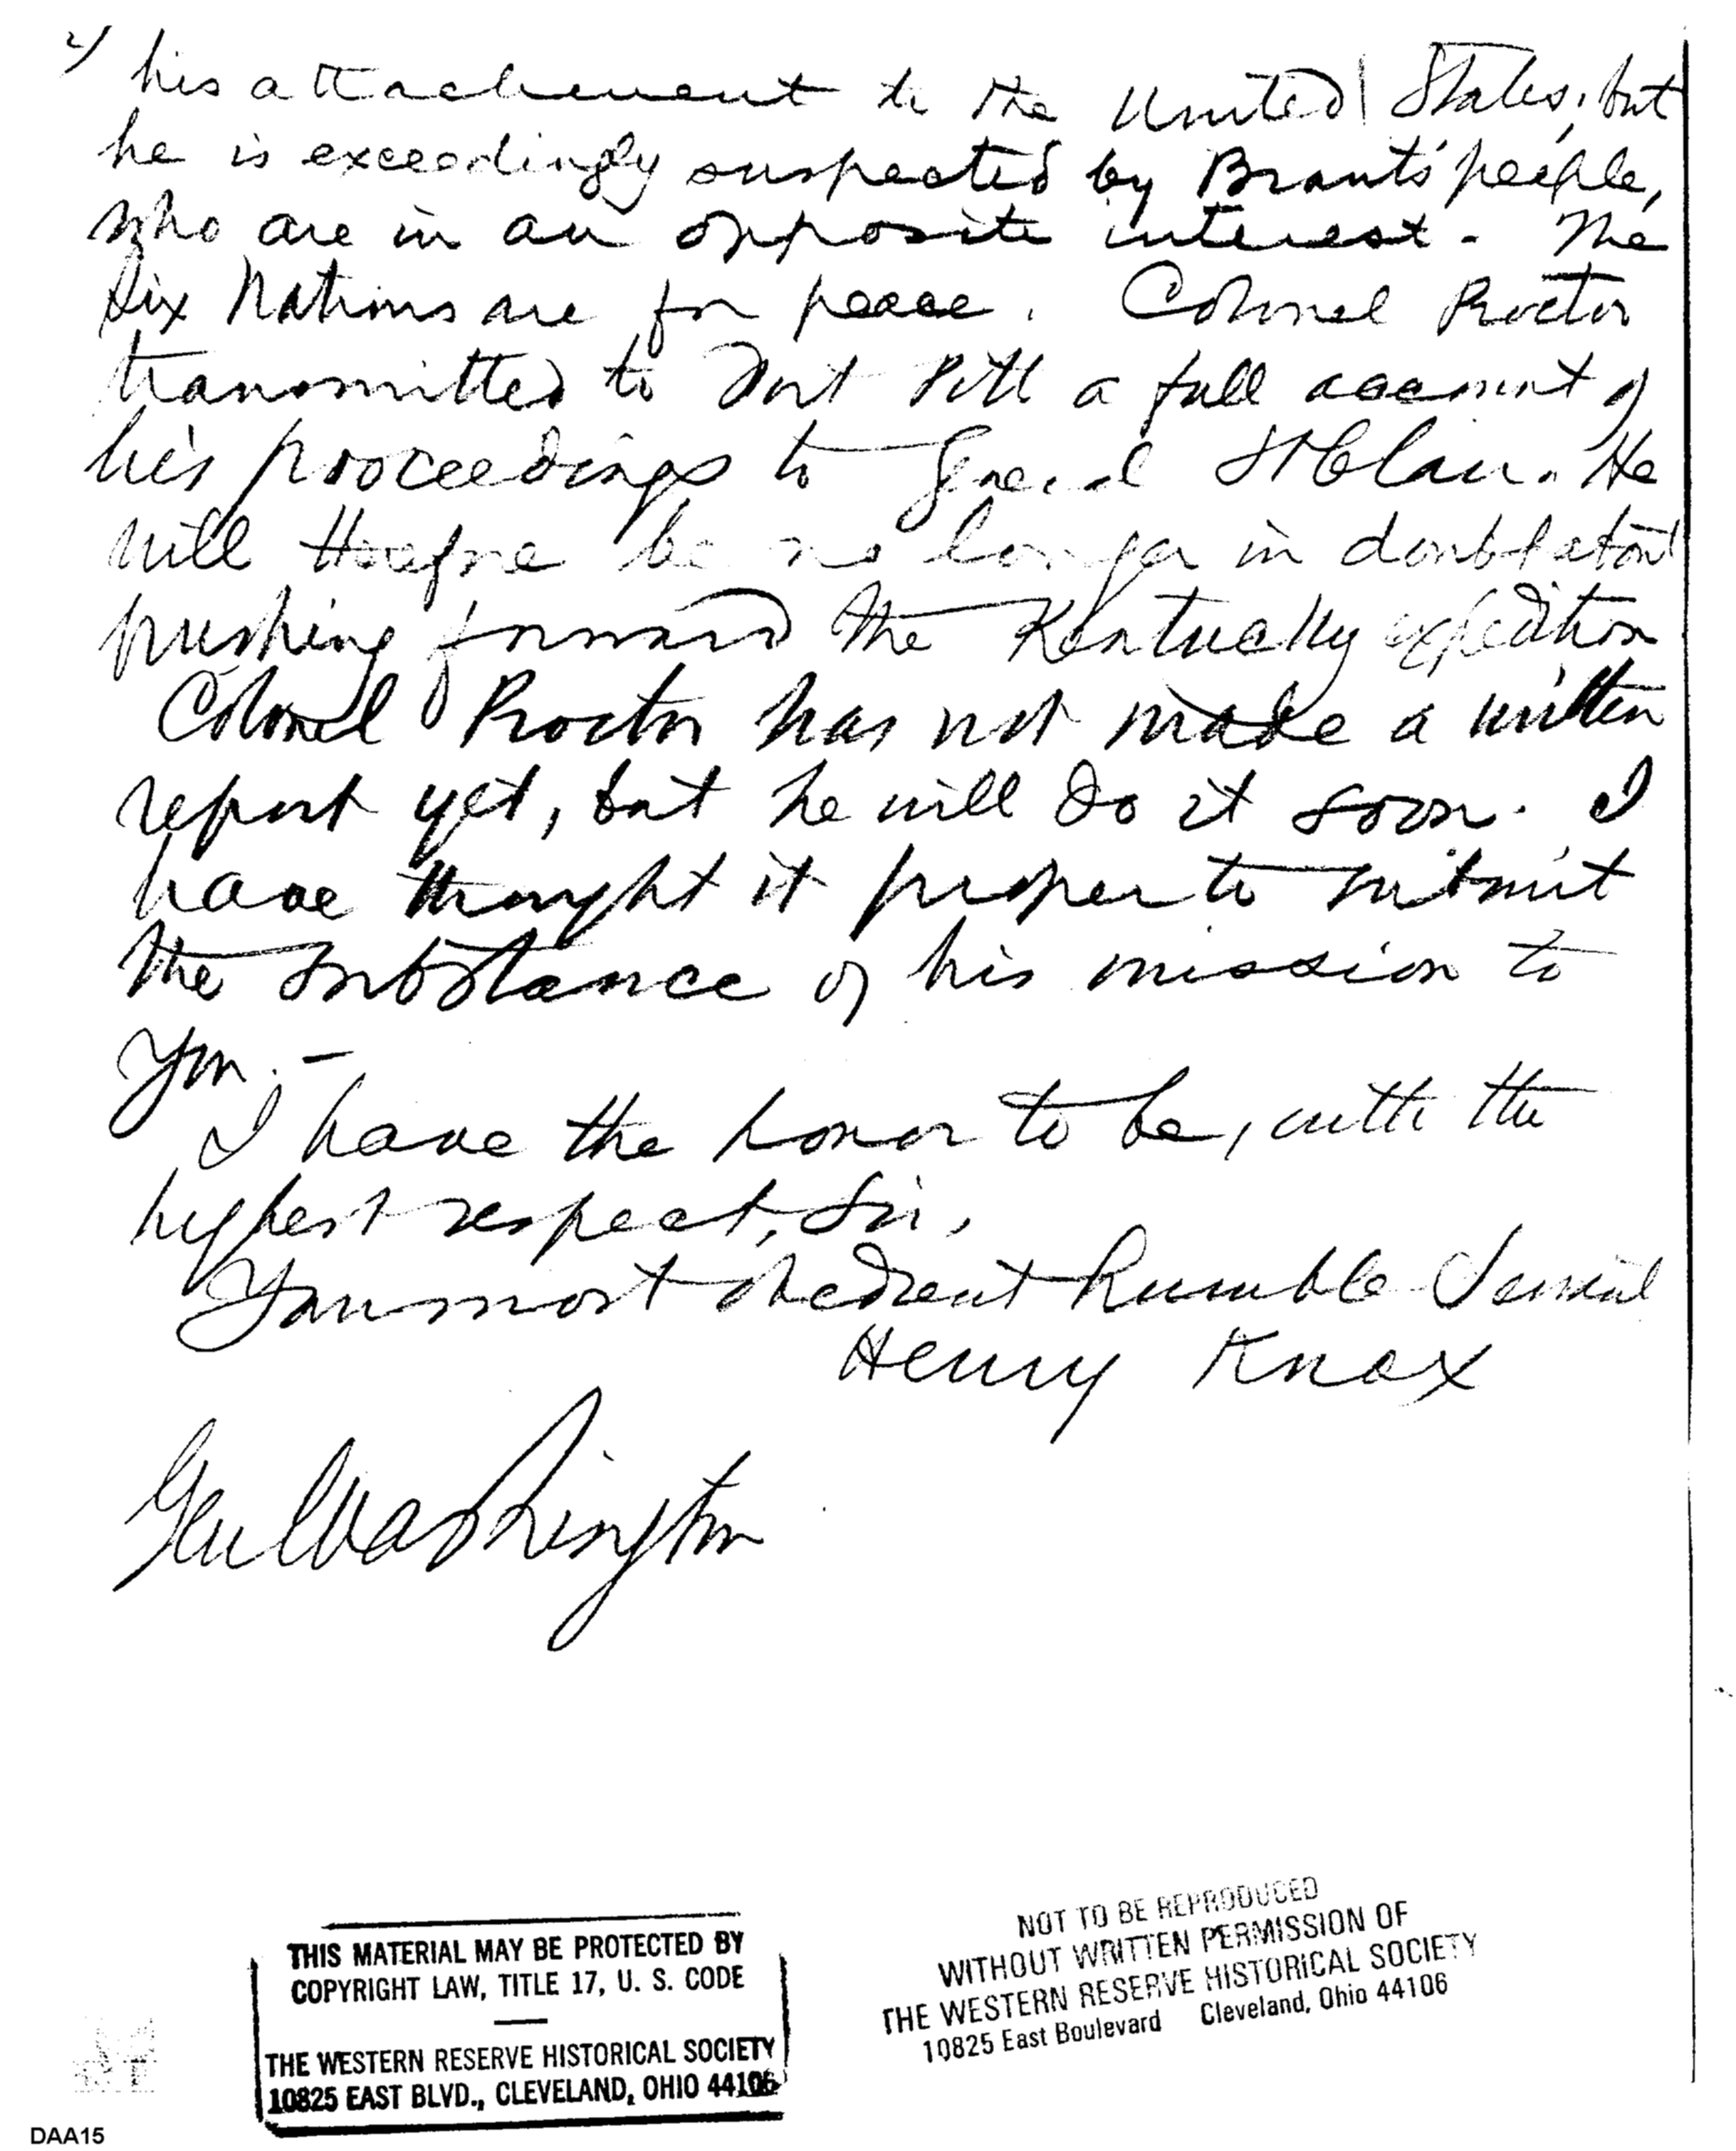 2/ his attachement to the United States, but
he is exceedingly suspected by Brant's people,
who are in an opposite interest - The
Six Nations are for peace. Colonel Proctor
transmitted to Fort Pitt a full account of
his proceedings to General St Clair. He
will therefore be no longer in doubt about
pushing forward the Kentucky expedition
Colonel Proctor has not made a written
report yet, but he will do it soon. I
have thought it proper to submit
the substance of his mission to
you. -
I have the honor to be, with the
highest respect, Sir,
Your most obedient humble Servant
Henry Knox
Gen Washington
THIS MATERIAL MAY BE PROTECTED BY
COPYRIGHT LAW, TITLE 17, U. S. CODE
THE WESTERN RESERVE HISTORICAL SOCIETY
10825 EAST BLVD., CLEVELAND, OHIO 44106
NOT TO BE REPRODUCED
WITHOUT WRITTEN PERMISSION OF
THE WESTERN RESERVE HISTORICAL SOCIETY
10825 East Boulevard Cleveland, Ohio 44106
DAA15